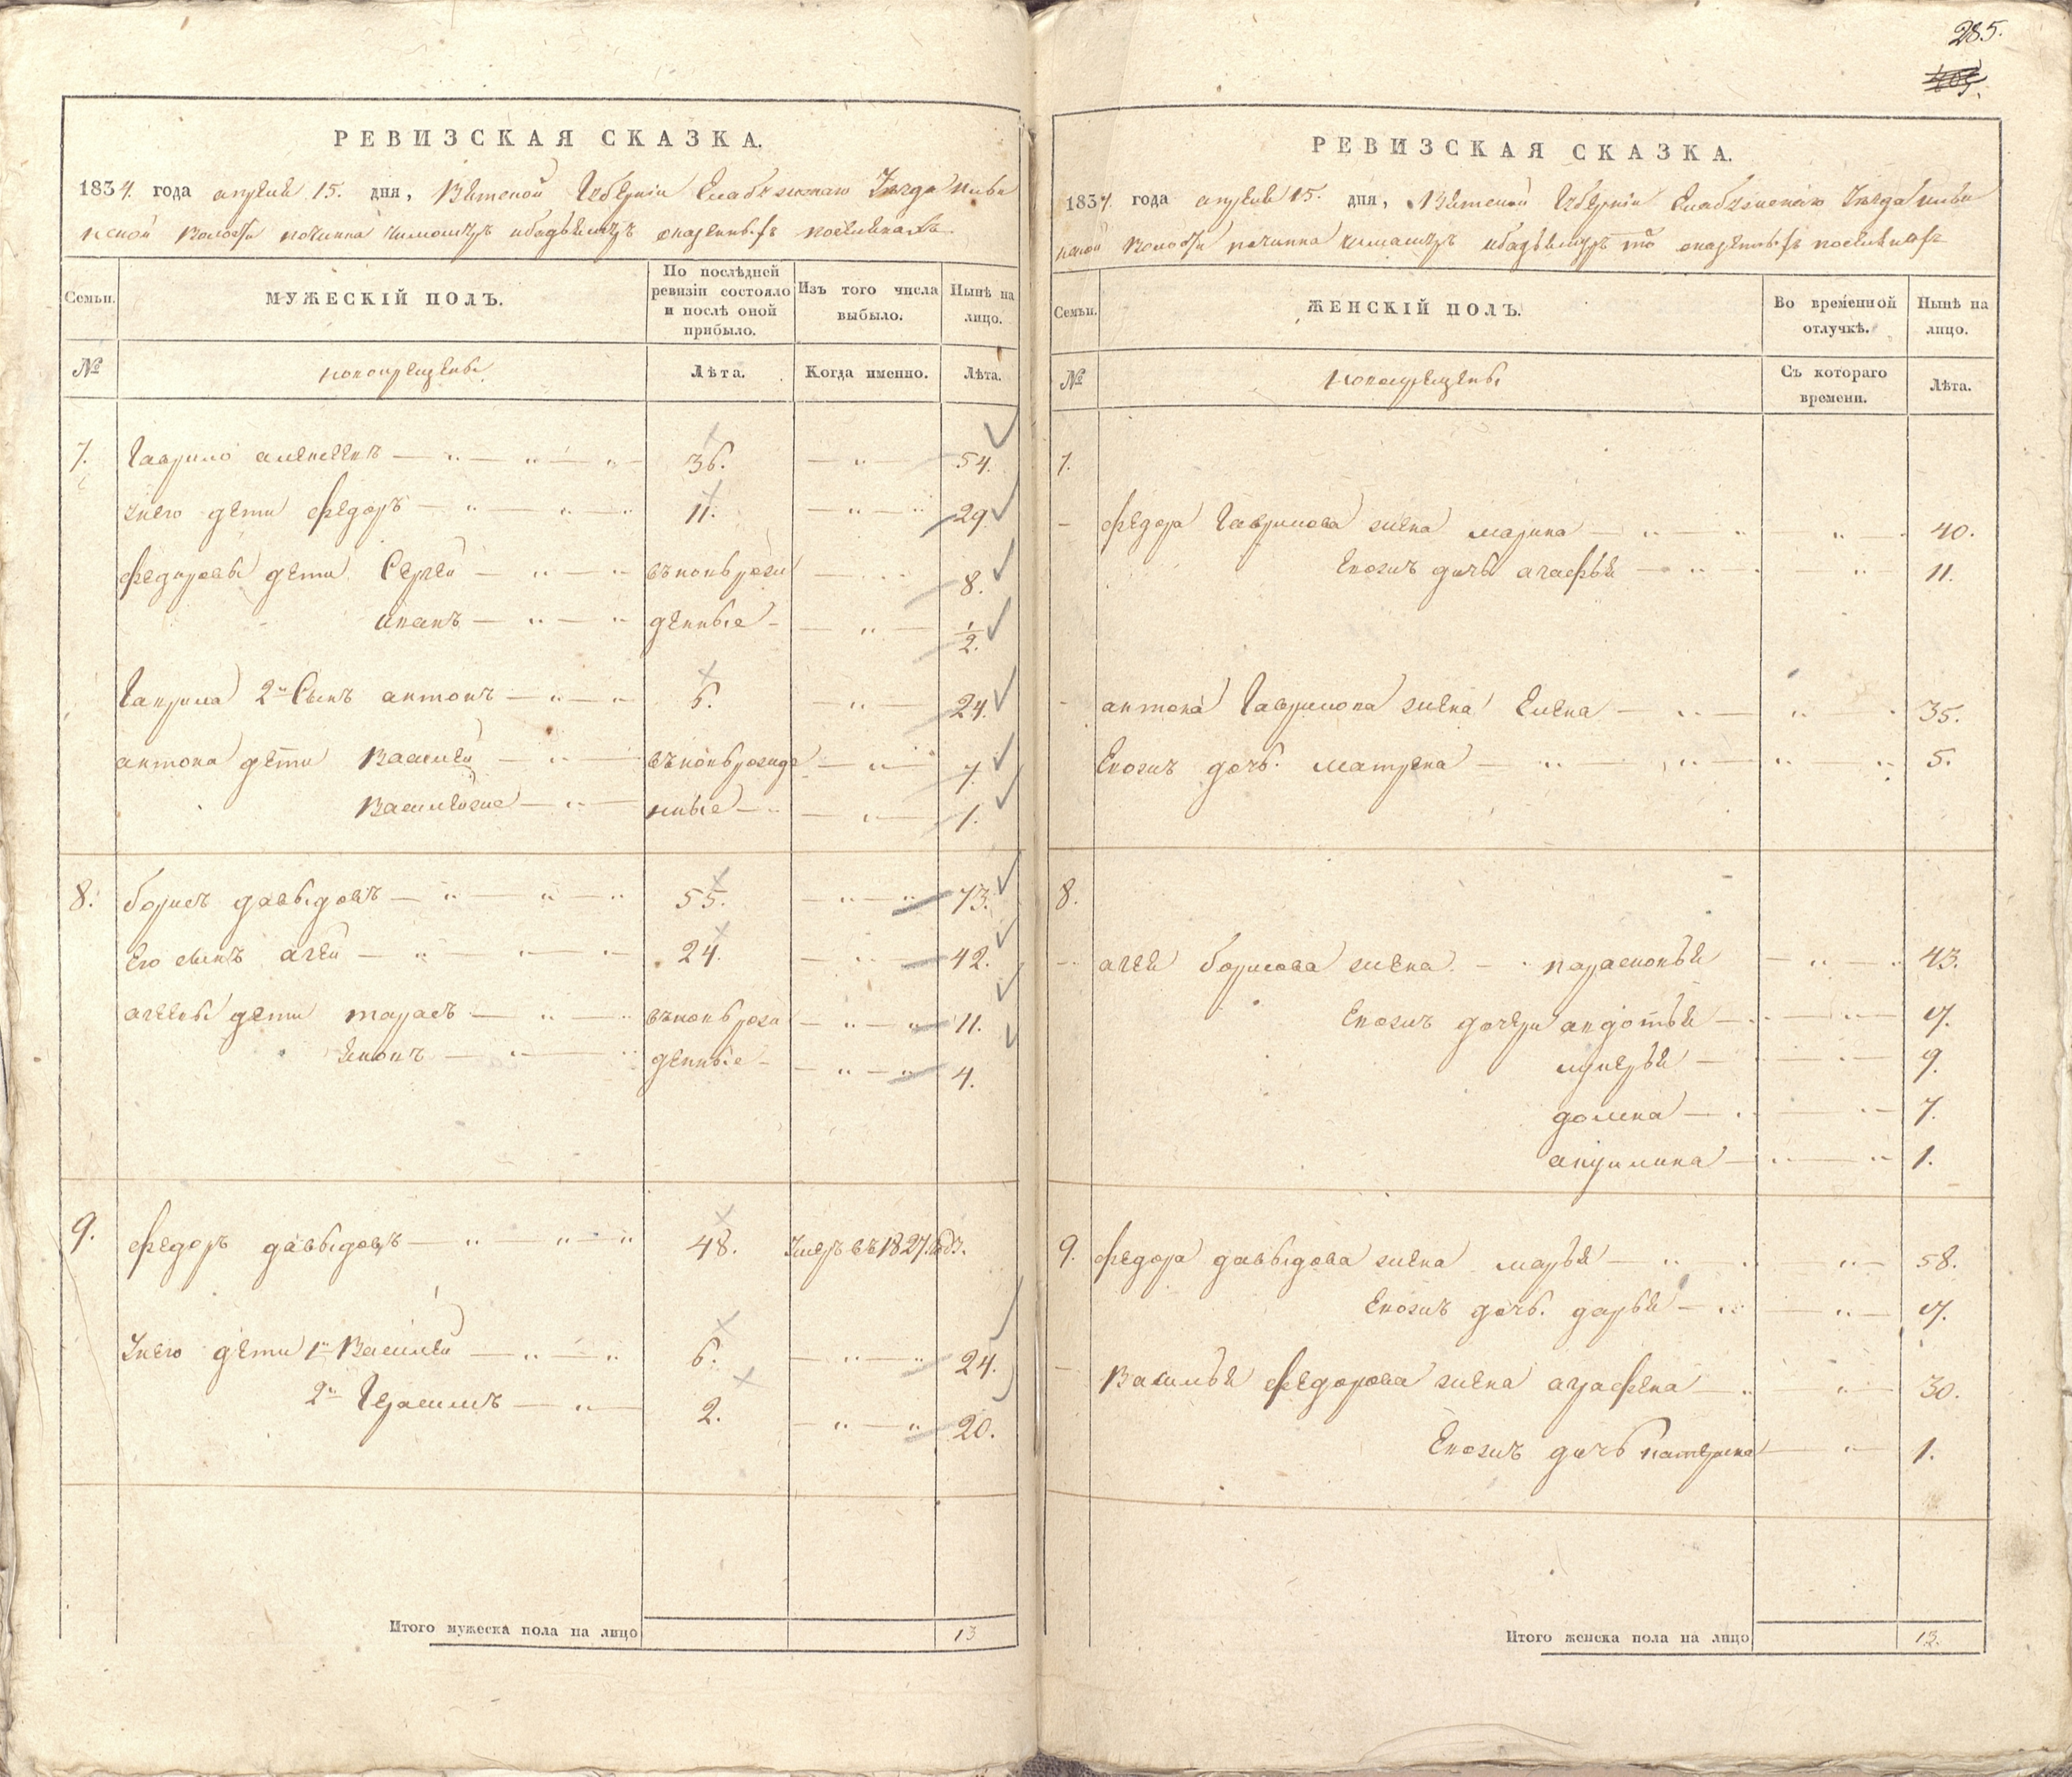 285.
РЕВИЗСКАЯ СКАЗКА.
1834. года апреля 15. дня, Вятской Губернiи Елабужскаго Уезда
волости починка
Семьи.
МУЖЕСКIЙ ПОЛЪ.
По послѣдней ревизiи состояло и послѣ оной прибыло.
Изъ того числа выбыло.
Нынѣ на лицо.
№
новокрещены
Лѣта.
Когда именно.
Лѣта.
7. Гаврило алексеевъ 36. 54.
унего дети федоръ 11. 29
федоровы дети Сергеи вновьрож 8.
иванъ денные 1/2.
Гаврила 2й Сынъ антонъ 6. 24.
антона дети Василеи вновьрожде 7.
нные 1.
8. борисъ давыдовъ 55. 73.
Его сынъ агеи 24. 42.
агеевы дети тарасъ вновьрож 11.
яковъ денные 4.
9. федоръ давыдовъ 48. Умеръ въ 1827. годз.
Унего дети 1й Василеи 6. 24.
2й Герасимъ 2. 20.
Итого мужеска пола на лицо 13
РЕВИЗСКАЯ СКАЗКА.
1834. года апреля 15. дня, Вятской Губернiи Елабужскаго Уезда
волости починка
Семьи.
ЖЕНСКIЙ ПОЛЪ.
Во временной отлучкѣ.
Нынѣ на лицо.
№
новокрещены
Съ котораго времени.
Лѣта.
7.
федора Гаврилова жена марина 40.
Евожъ дочь агафья 11.
антона Гаврилова жена Елена 35.
Евожъ дочь. матрена 5.
8.
агея борисова жена парасковья 43.
Евожъ дочери авдотья 17.
лукерья 9.
домна 7.
акулина 1.
9. федора давыдова жена марья 58.
Евожъ дочь. дарья 17.
Василья федорова жена аграфена 30.
Евожъ дочь катерина 1.
Итого женска пола на лицо 13.